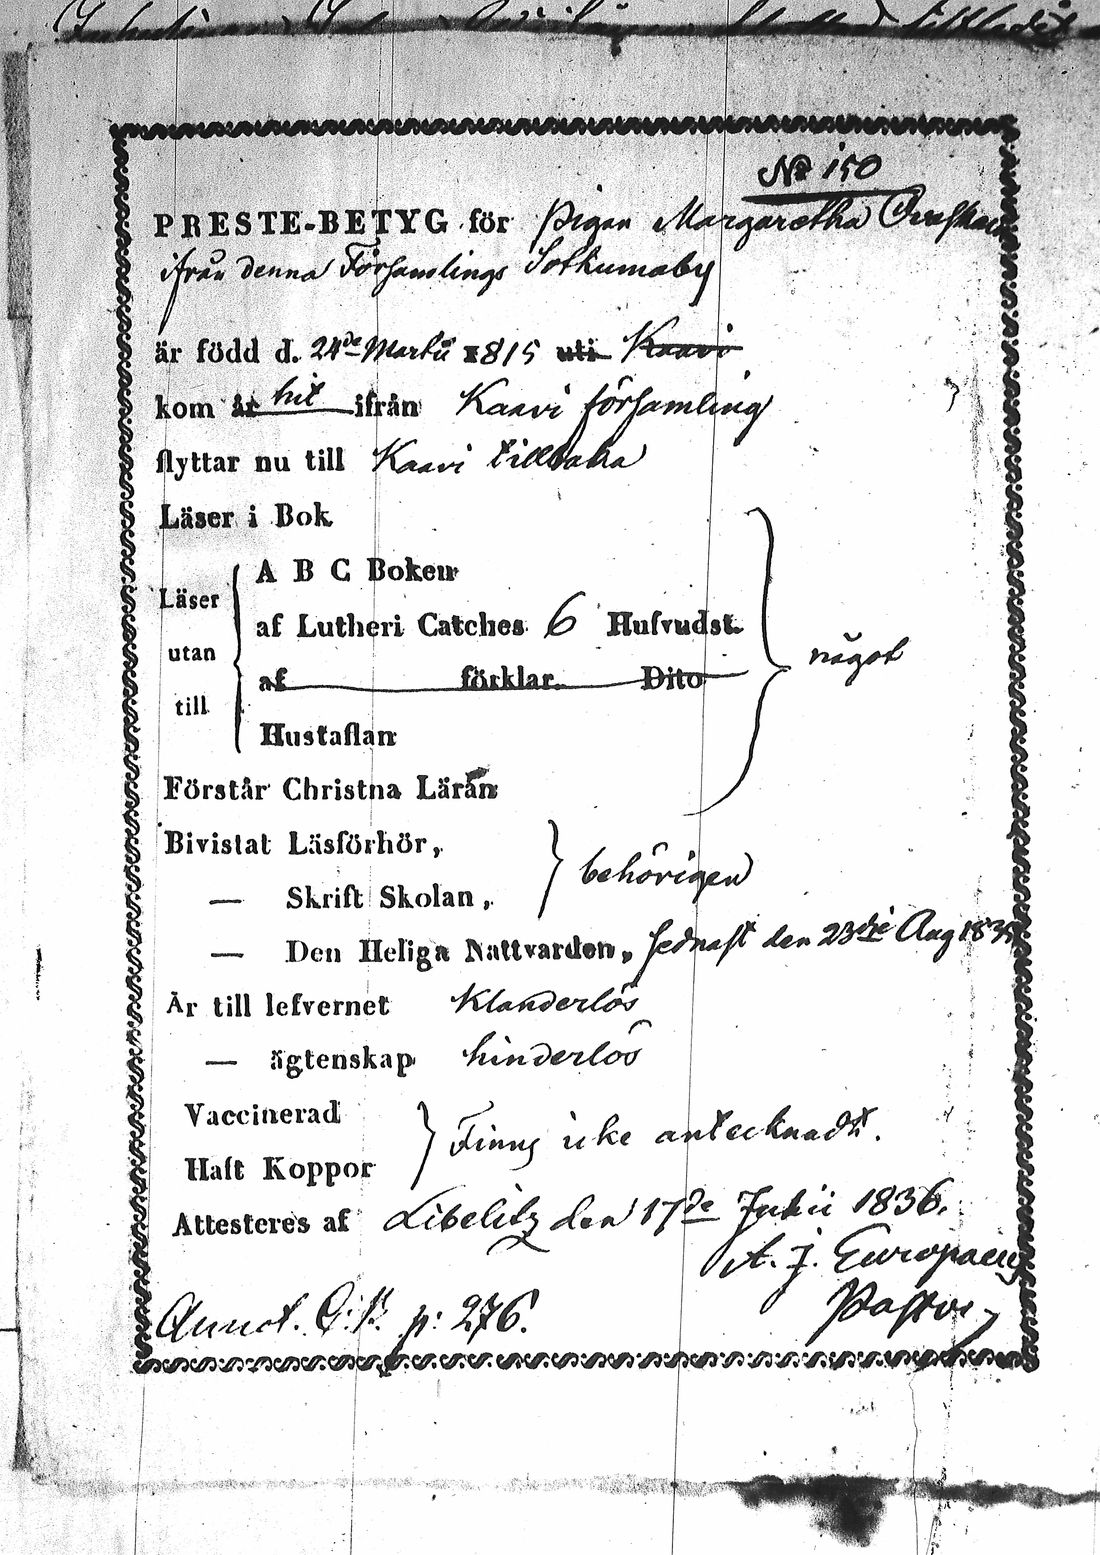 No 150
PRESTE-BETYG för Pigan Margaretha
ifrån denna Församlings Sotkumaby
är född d. 24de Martii 1815 uti Kaavi
kom år hit ifrån Kaavi församling
flyttar nu till Kaavi tillbaka
Läser i Bok
A B C Boken
Läser
af Lutheri Catches. 6 Hufvudst.
utan
af förklar. Dito
till
Hustaflan
något
Förstår Christna Läran
Bivistat Läsförhör,
behörigen
— Skrift Skolan,
— Den Heliga Nattvarden, sednast den 23die Aug
Är till lefvernet Klanderlös
— ägtenskap hinderlös
Vaccinerad
Finns icke antecknadt.
Haft Koppor
Attesteres af Libelitz den 17de Julii 1836.
A. J. Europaeus
Pastor
Annot. p: 276.